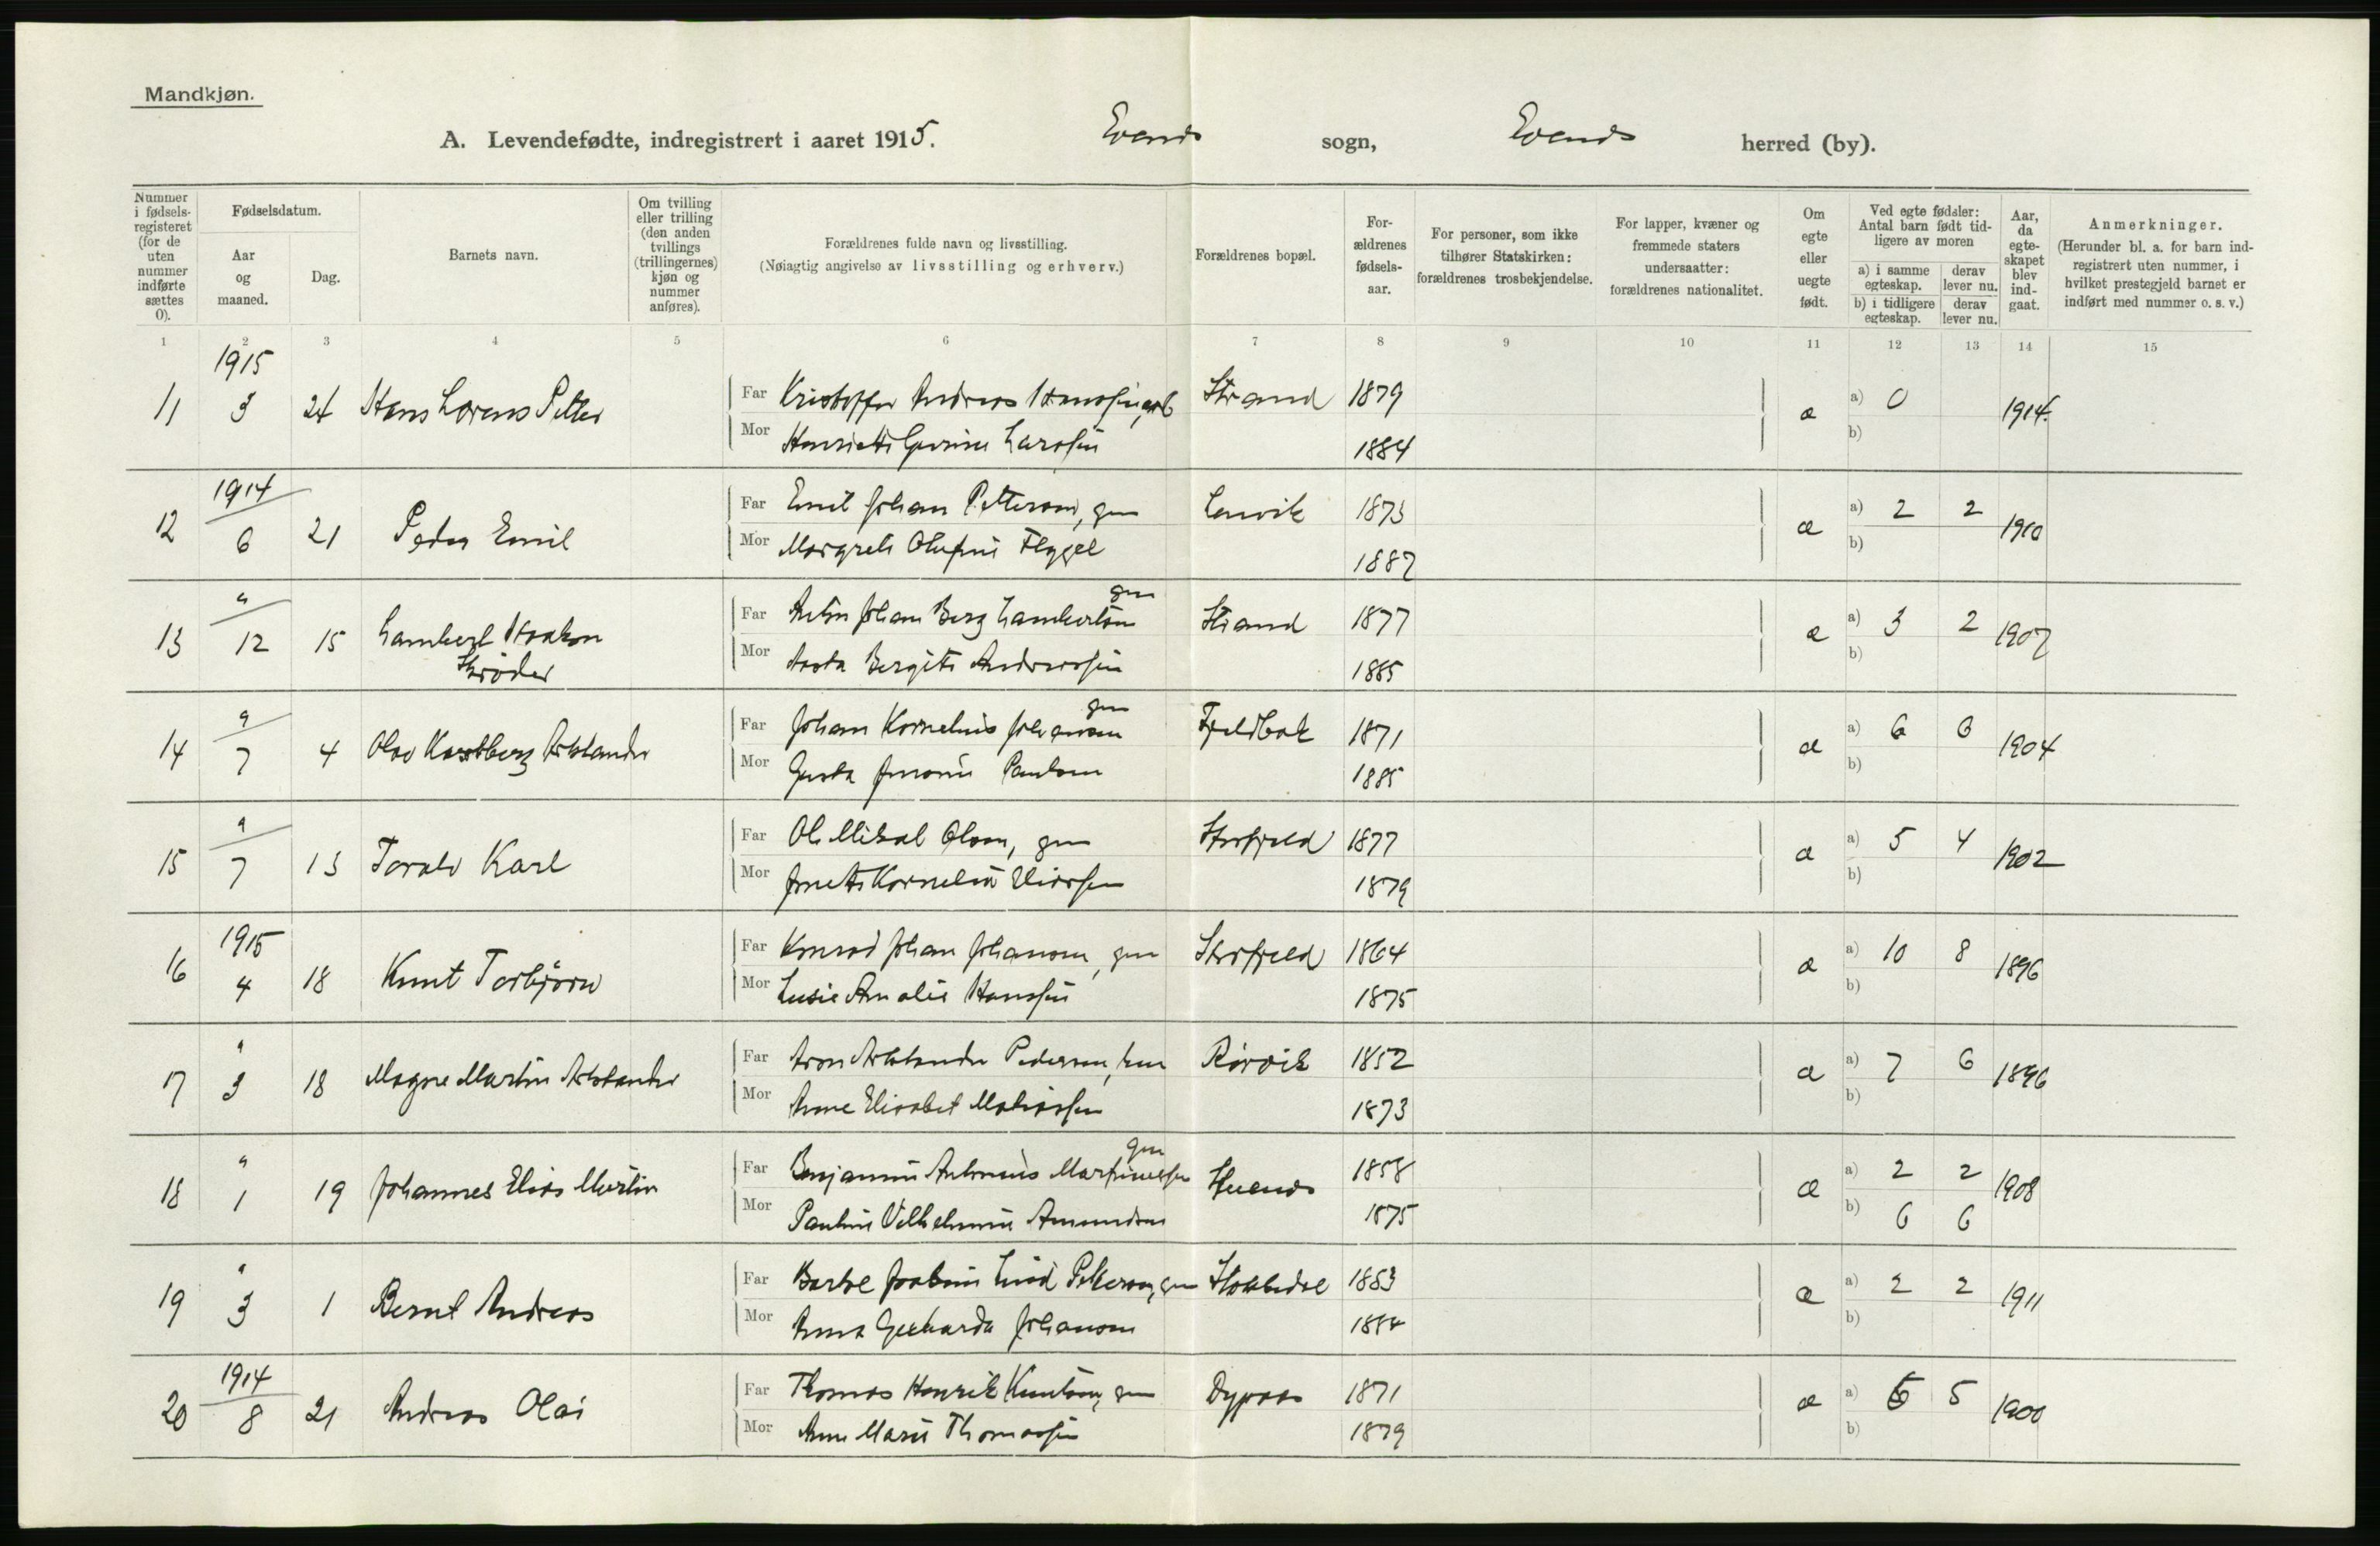 Mandkjøn.
A. Levendefødte, indregistrert i aaret 1915. Evenes sogn, Evenes herred (by).
Nummer i fødsels-registeret (for de uten nummer indførte sættes 0).
Fødselsdatum.
Aar og maaned.
Dag.
Barnets navn.
Om tvilling eller trilling (den anden tvillings (trillingernes) kjøn og nummer anføres).
Forældrenes fulde navn og livsstilling.
(Nøiagtig angivelse av livsstilling og erhverv.)
Forældrenes bopæl.
For-ældrenes fødsels-aar.
For personer, som ikke tilhører Statskirken: forældrenes trosbekjendelse.
For lapper, kvæner og fremmede staters undersaatter: forældrenes nationalitet.
Om egte eller uegte født.
Ved egte fødsler: Antal barn født tid-ligere av moren
a) i samme egteskap. derav lever nu.
b) i tidligere egteskap. derav lever nu.
Aar, da egte-skapet blev ind-gaat.
Anmerkninger.
(Herunder bl. a. for barn ind-registrert uten nummer, i hvilket prestegjeld barnet er indført med nummer o. s. v.)
1 2 3 4 5 6 7 8 9 10 11 12 13 14 15
1915
11 3 24 Hans Lorens Petter Far Kristoffer Andreas Hansen, arb Strand 1879 æ a) 0 1914.
Mor Henriette Larssen 1884 b)
1914
12 6 21 Peder Emil Far Emil Johan Petterson, gm Lenvik 1873 æ a) 2 2 1910
Mor Margrete Olufine Flygel 1887 b)
" gm
13 12 15 Lambert Haakon Far Anton Johan Berg Lambertsen Strand 1877 æ a) 3 2 1907
Strøder Mor Aasta Bergite Andreassen 1885 b)
" gm
14 7 4 Olav Korstberg Arktander Far Johan Kornelius Johansen 1871 æ a) 6 6 1904
Mor Gusta Paulsen 1885 b)
"
15 7 13 Toralv Karl Far Ole Mikal Olsen, gm Storfjeld 1877 æ a) 5 4 1902
Mor Kornelia Eliassen 1879 b)
1915
16 4 18 Knut Torbjørn Far Konrad Johan Johansen, gm Storfjeld 1864 æ a) 10 8 1896
Mor Lusie Amalie Hanssen 1875 b)
"
17 3 18 Magne Martin Arktander Far Aron Arktander Pedersen, Rørvik 1852 æ a) 7 6 1896
Mor Anne Elisabet Mathiassen 1873 b)
" gm
18 1 19 Johannes Elias Martin Far Benjamin Antonius Martinussen 1858 æ a) 2 2 1908
Mor Pauline Vilhelmine Amundsen 1875 b) 6 6
"
19 3 1 Bernt Andreas Far Joakim Lind Petterson, gm 1883 æ a) 2 2 1911
Mor Anna Gerharda Johansen 1884 b)
1914
20 8 21 Andreas Olai Far Thomas Henrik Knutsen, gm Dypaas 1871 æ a) 5 5 1900
Mor Anne Marie Thomassen 1879 b)